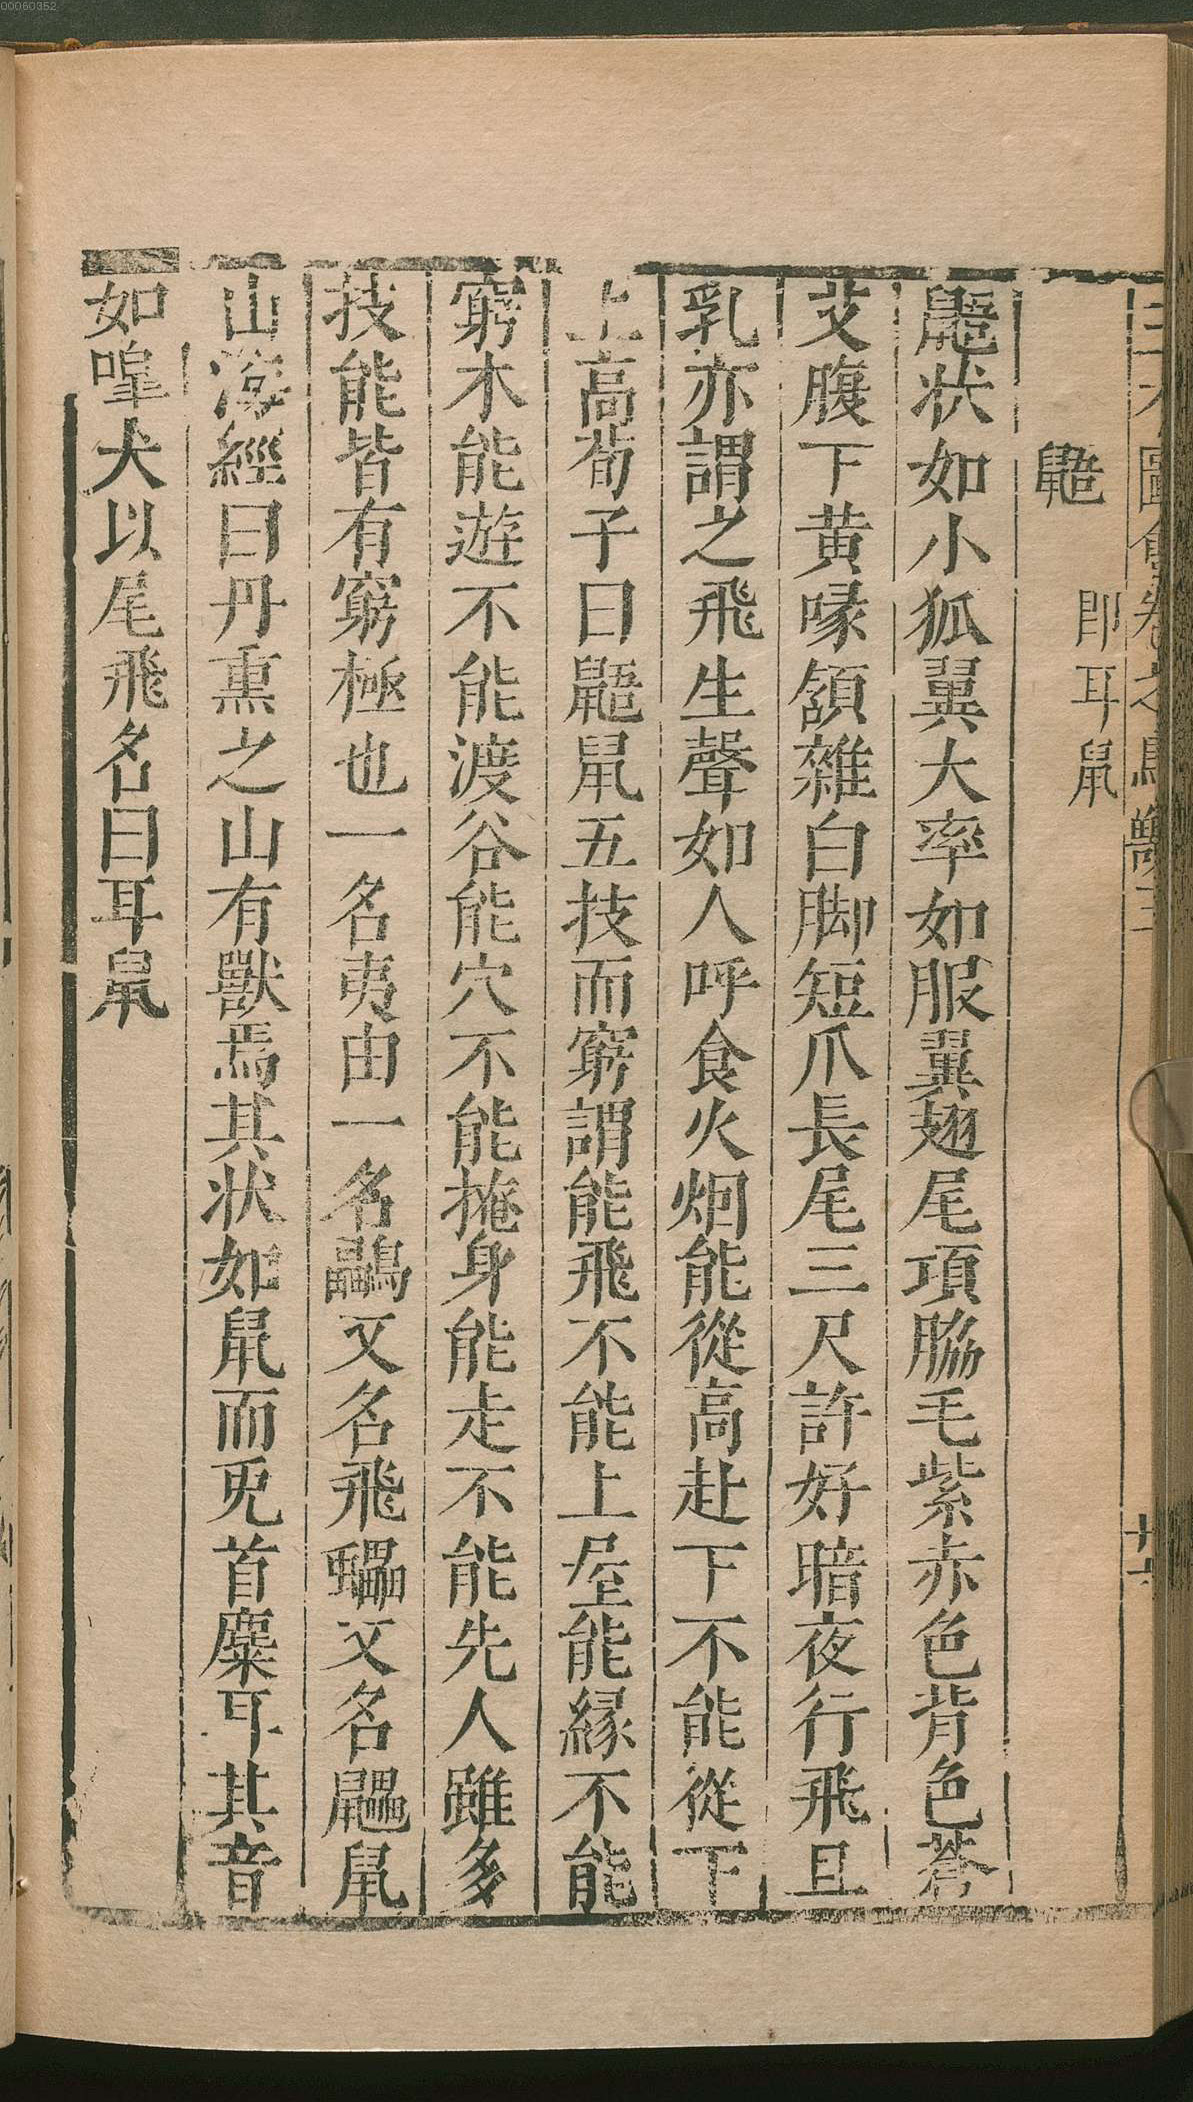 00060352
三才圖會卷之鳥獸三
鼯
即耳鼠
鼯状如小狐翼大率如服翼翅尾項脇毛紫赤色背色蒼
艾腹下黄喙頷雜白脚短爪長尾三尺許好暗夜行飛且
乳亦謂之飛生聲如人呼食火烟能從高赴下不能從下
上高荀子曰鼯鼠五技而窮謂能飛不能上屋能緣不能
窮木能遊不能渡谷能穴不能掩身能走不能先人雖多
技能皆有窮極也一名夷由一名鸓又名飛蠝又名鼺鼠
山海經曰丹熏之山有獸焉其状如鼠而兎首麋耳其音
如嘷犬以尾飛名曰耳鼠